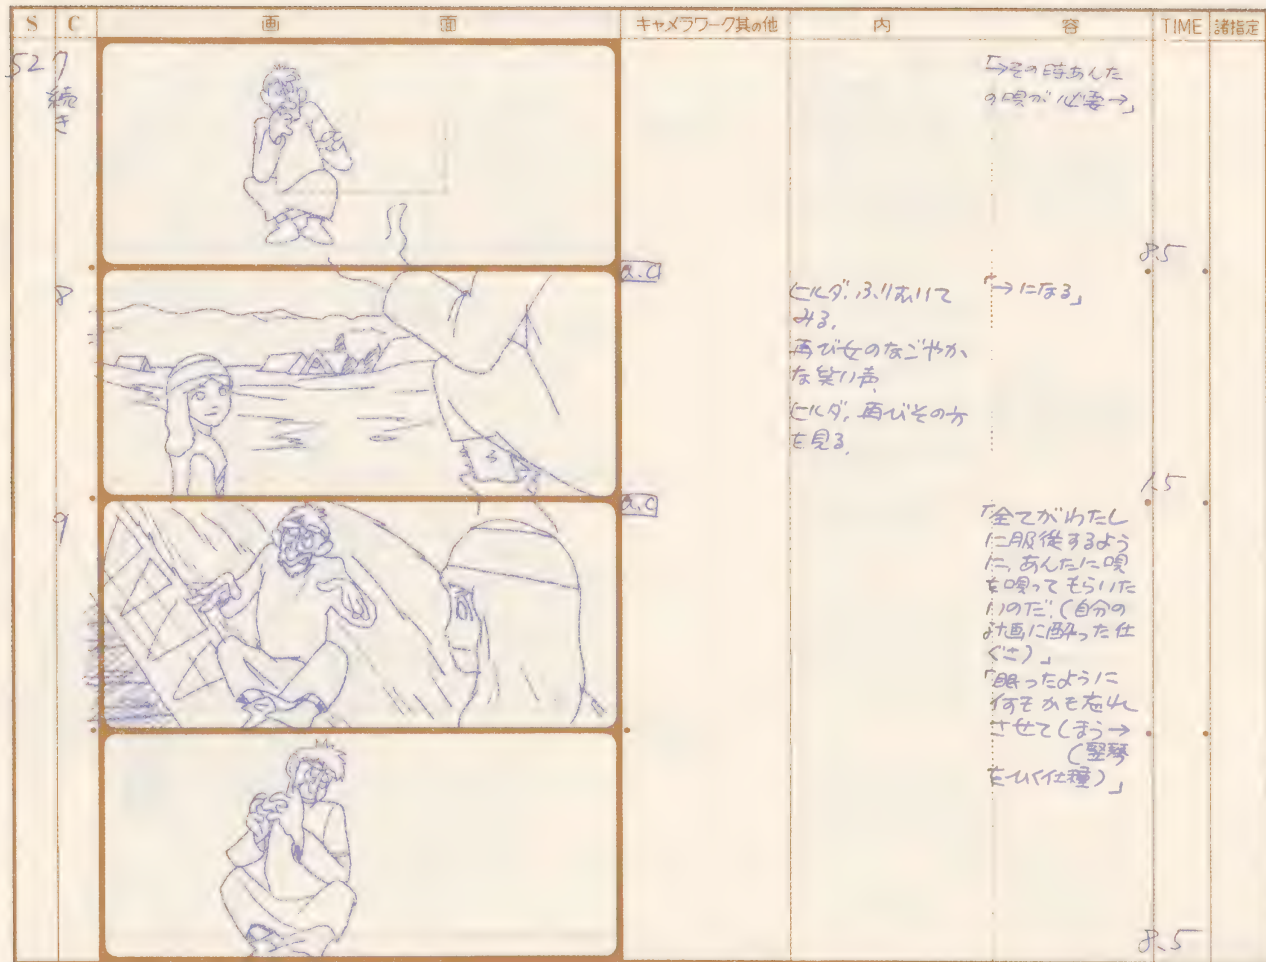 S C 画 面 キャメラワーク其の他 内 容 TIME 諸指定
52 7
続き
「→その時あんた
の唄が必要→」
8.5
8
a.c
ヒルダ、ふりむいて
みる。
再び女のなごやか
な笑い声
ヒルダ、再びその方
を見る。
「→になる」
1.5
9
a.c
「全てがわたし
に服従するよう
に、あんたに唄
を唄ってもらいた
いのだ。(自分の
計画に酔った仕
ぐさ)」
「眠ったように
何もかも忘れ
させてしまう→
(竪琴
をひく仕種)」
8.5